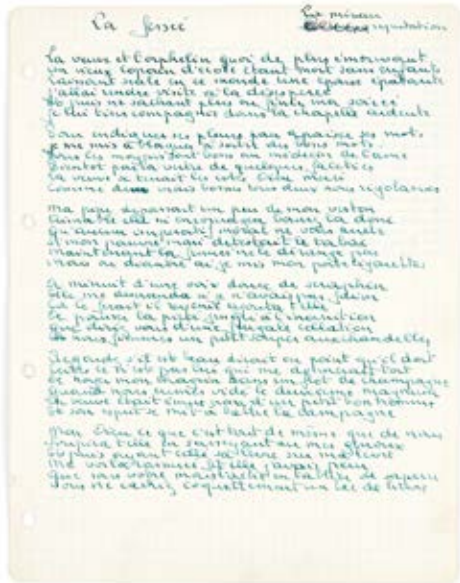 La fessée
La mineur
La veuve et l'orphelin quoi de plus émouvant
un vieux copain d'école étant mort sans enfants
Laissant seule en ce monde une épouse épatante
J'allai rendre visite à la désespérée
Et puis ne sachant plus où finir ma soirée
Je lui tins compagnie dans la chapelle ardente
Pour endiguer ses pleurs pour apaiser ses maux
Je me mis à blaguer à sortir des bons mots
Tous les moyens sont bons au médecin de l'âme
Bientôt par la vertu de quelques facéties
La veuve se tenait les côtes Dieu merci
Comme de vrais bossus tous deux nous rigolâmes
Ma pipe dépassant un peu de mon veston
Aimable elle m'encouragea bourrez la donc
Qu'aucun impératif moral ne vous arrête
Si mon pauvre mari détestait le tabac
Maintenant la fumée ne le dérange plus
Mais où diantre ai je mis mon porte cigarettes
A minuit d'une voix douce de séraphin
Elle me demanda si je n'avais pas faim
Ça le ferait il revenir ajouta t elle
De pousser la piété jusqu'à l'inanition
Que diriez vous d'une frugale collation
Et nous fîmes un petit souper aux chandelles
Regardez s'il est beau dirait on point qu'il dort
Certes ce n'est pas lui qui me donnerait tort
De noyer mon chagrin dans un flot de champagne
Quand nous eûmes vidé le deuxième magnum
La veuve était émue nom d'un petit bonhomme
Et son esprit se mit à battre la campagne
Mon Dieu ce que c'est tout de même que de nous
Soupira t elle en s'asseyant sur mes genoux
Et puis ayant collé sa lèvre sur ma lèvre
Me voilà rassurée fit elle j'avais peur
Que sous votre moustache en tablier de sapeur
Vous ne cachiez coquettement un bec de lièvre